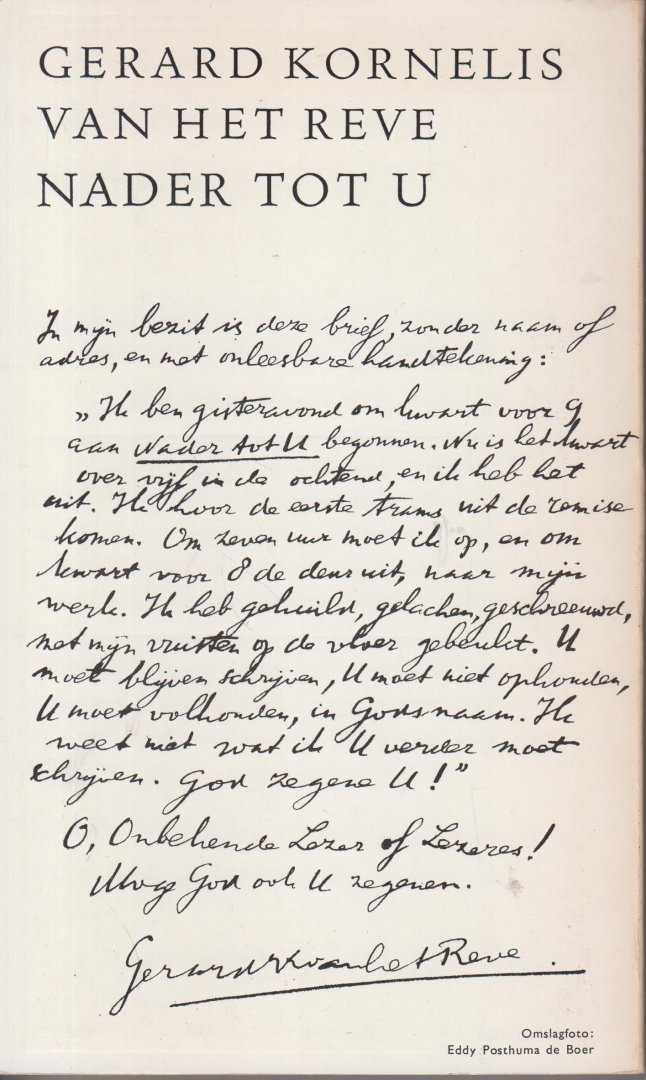 GERARD KORNELIS
VAN HET REVE
NADER TOT U
In mijn bezit is deze brief, zonder naam of
adres, en met onleesbare handtekening:
„Ik ben gisteravond om kwart voor 9
aan Nader tot U begonnen. Nu is het kwart
over vijf in de ochtend, en ik heb het
uit. Ik hoor de eerste trams uit de remise
komen. Om zeven uur moet ik op, en om
kwart voor 8 de deur uit, naar mijn
werk. Ik heb gehuild, gelachen, geschreeuwd,
met mijn vuisten op de vloer gebeukt. U
moet blijven schrijven, U moet niet ophouden,
U moet volhouden, in Godsnaam. Ik
weet niet wat ik U verder moet
schrijven. God zegene U!”
O, Onbekende Lezer of Lezeres!
Moge God ook U zegenen.
Gerard K van het Reve.
Omslagfoto:
Eddy Posthuma de Boer